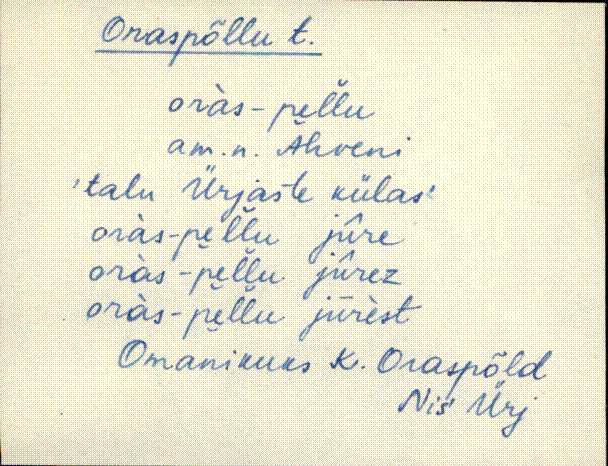 Oraspõllu t.
oràs-pe̮l̆l̆u
am.n. Ahveni
'talu Ürjaste külas'
oràs-pe̮l̆l̆u jûre
oràs-pe̮l̆l̆u jûrez
oràs-pe̮l̆l̆u jūrèst
Omanikuks K. Oraspõld
Nis Ürj